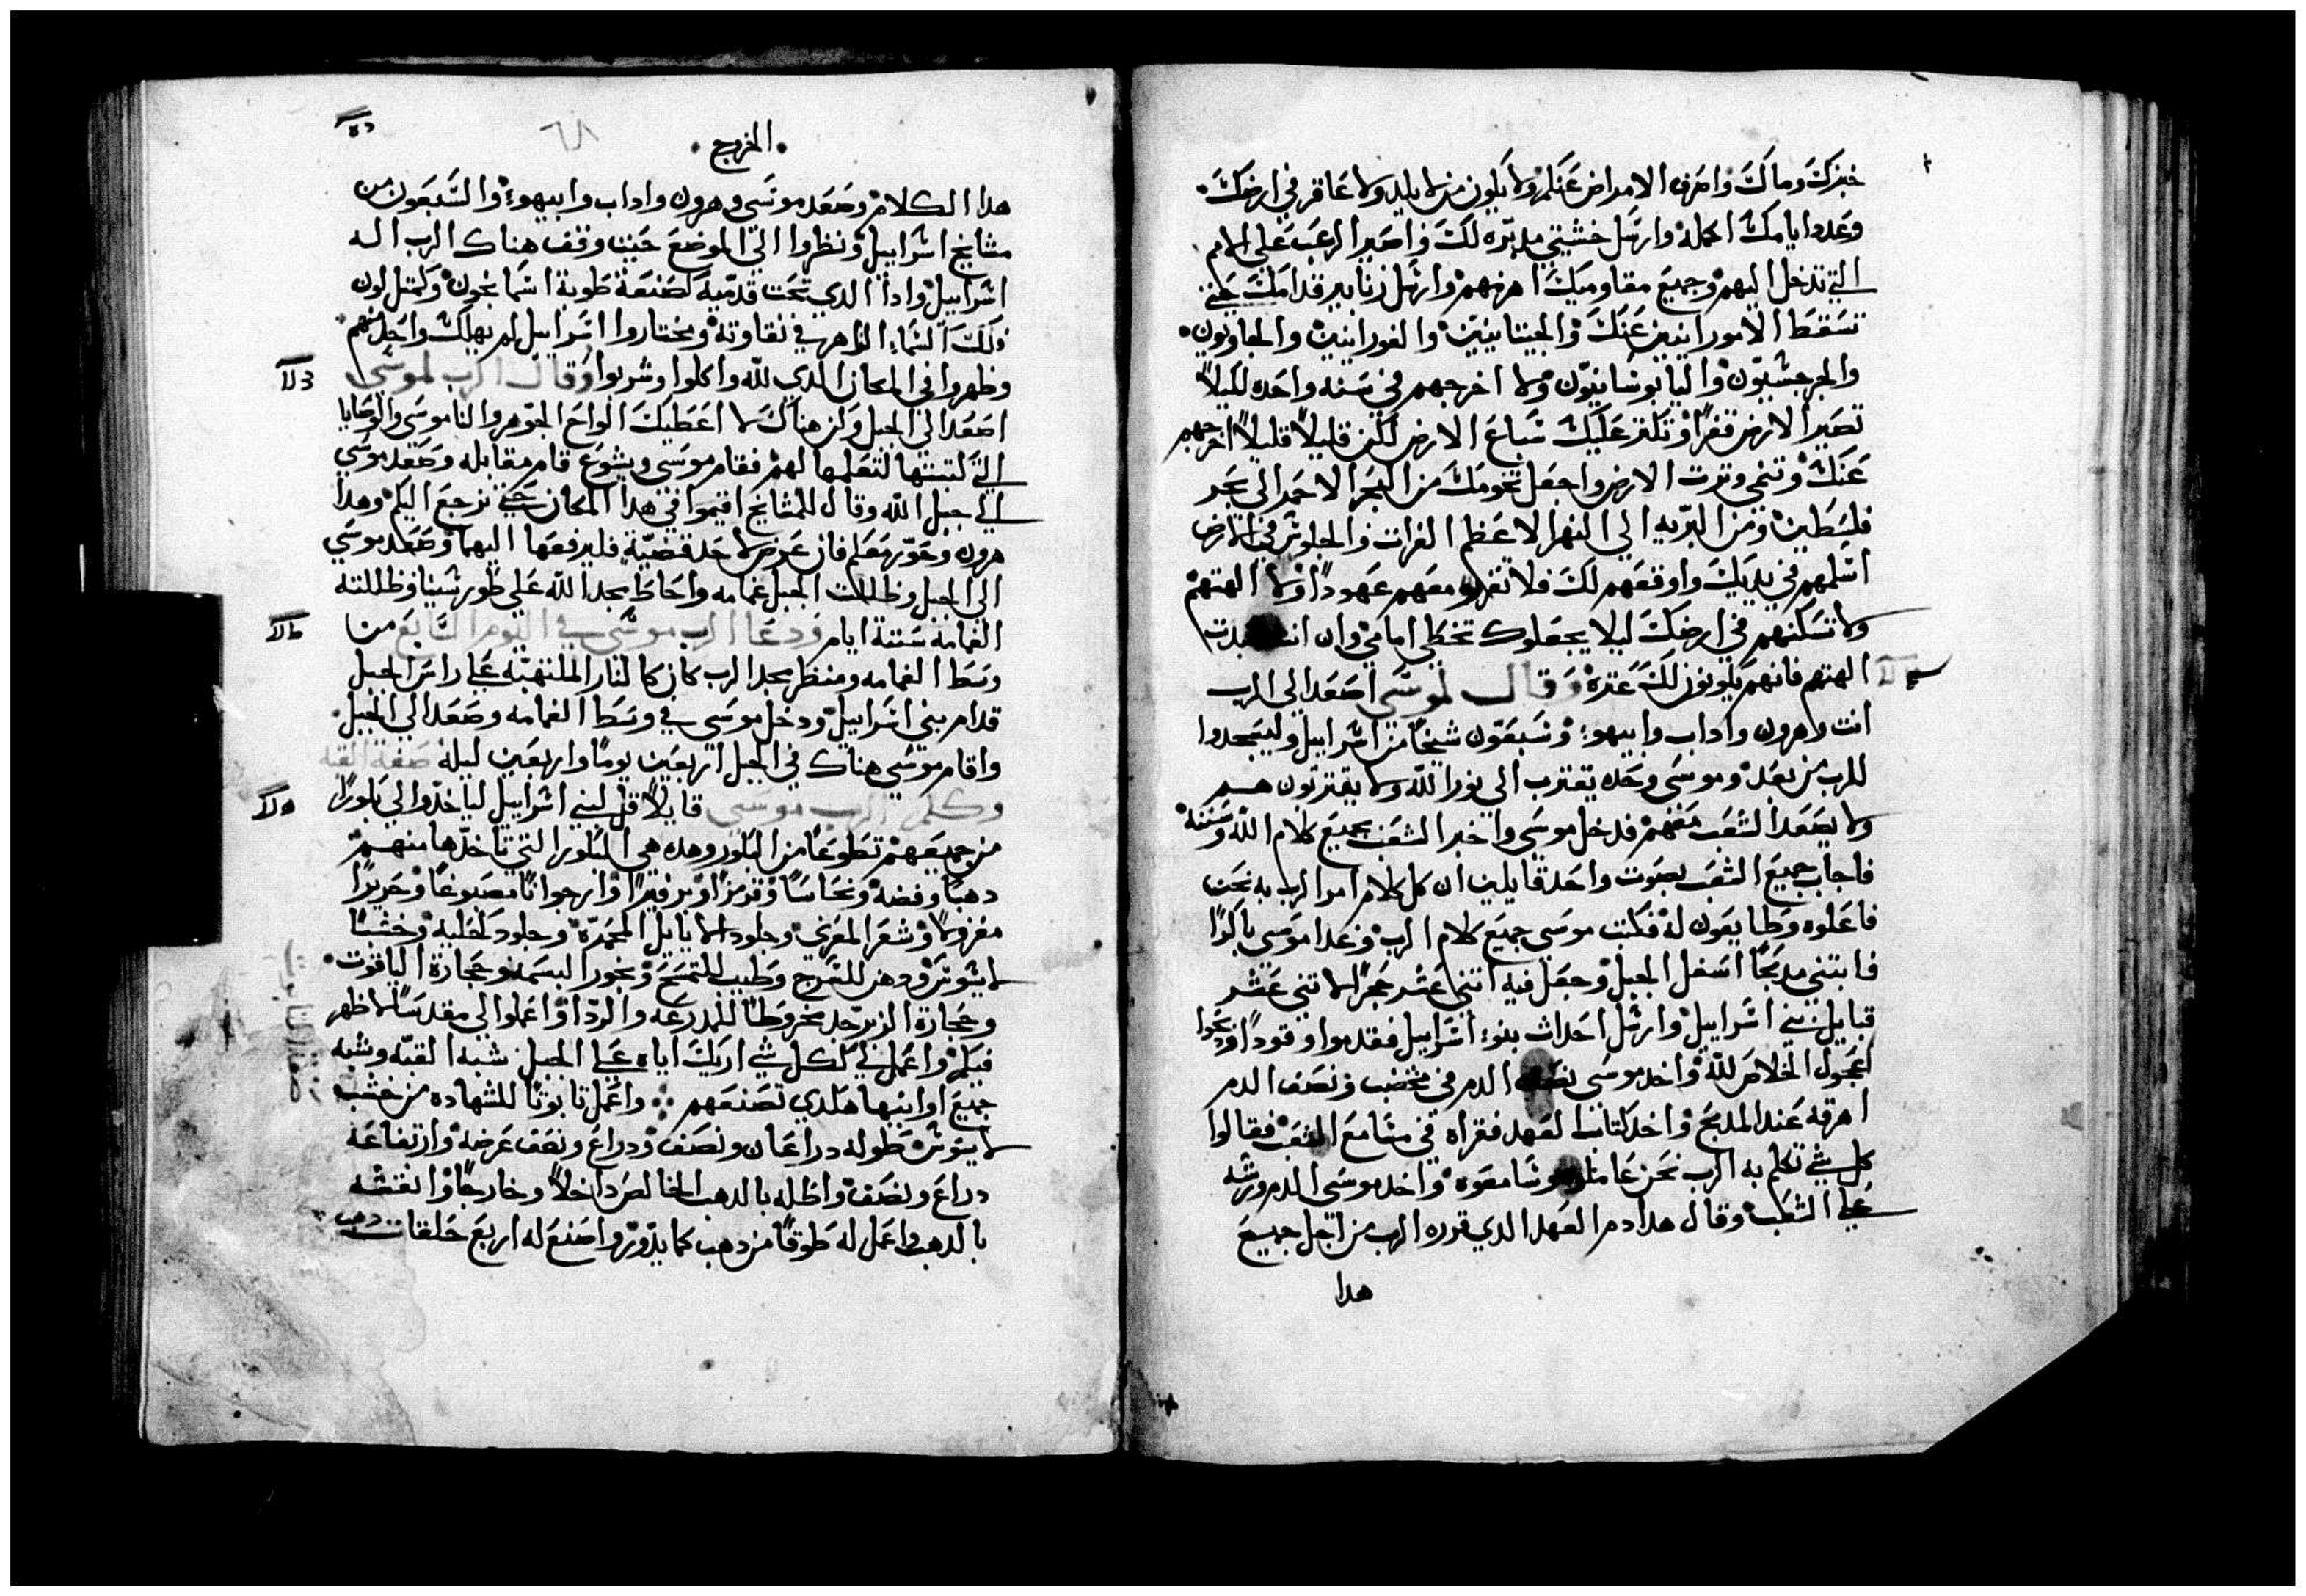 خبزك وماك واصرف الامراض عنكم ولا يكون من لا يلد ولا عاقر في ارضك
وعدد ايامك اكمله وارسل خشيتي مدبره لك واصير الرعب علي الامم
التي تدخل اليهم وجميع مقاوميك اهزمهم وارسل زنابير قدامك حتي
تسقط الامورانيين عنك والحيتانيين والفورانيين والحاويون
والجرجشيون واليابوسانيون ولا اخرجهم في سنه واحده لكيلا
تصير الارض قفرا وتكثر عليك سباع الارض لكن قليلا قليلا اخرجهم
عنك وتنمي وترت الارض واجعل تخومك من البحر الاحمر الي بحر
فلسطين ومن البريه الي النهر الاعظم الفرات والجلوس في الارض
اسلمهم في يديك واوقعهم لك فلا تقرر معهم عهودا ولا الهتهم
ولا تسكنهم في ارضك ليلا يجعلوك تخطي امامي وان انت عبدت
الهتهم فانهم يكونون لك عتره وقال لموسي اصعد الي الرب
انت وهرون واداب وابيهوء وسبعون شيخا من اسراييل وليسجدوا
للرب من بعد وموسي وحده يقترب الي نور الله ولا يقتربون هم
ولا يصعد الشعب معهم فدخل موسي واخبر الشعب بجميع كلام الله وسننه
فاجاب جميع الشعب بصوت واحد قايلين ان كل كلام امر الرب به نحن
فاعلوه وطايعون له فكتب موسي جميع كلام الرب وغدا موسي باكرا
فابتني مدبحا اسفل الجبل وجعل فيه اتني عشر حجرا لاتني عشر
قبايل بني اسراييل وارسل احداث بنوء اسراييل فقدموا وقودا ودبحوا
عجول الخلاص لله واخد موسي نصف الدم في مخضب ونصف الدم
اهرقه عند المدبح واخد كتاب العهد فقراه في مسامع الشعب فقالوا
كل شي تكلم به الرب نحن عاملوه وسامعوه واخد موسي الدم ورشه
علي الشعب وقال هدا دم العهد الدي قرره الرب من اجل جميع
هدا
٦٨
الخروج
هدا الكلام وصعد موسي وهرون واداب وابيهوء والسبعون من
مشايخ اسراييل ونظروا الي الموضع حيث وقف هناك الرب اله
اسراييل وادا الدي تحت قدميه كصنعة طوبة اسمانجون وكمثل لون
فلك السماء الزاهر في نقاوته ومختاروا اسراييل لم يهلك واحد منهم
وظهروا في المكان الدي لله واكلوا وشربوا وقال الرب لموسي
اصعد الي الجبل وكن هناك لاعطيك الواح الجوهر والناموسي والوصايا
التي كتبتها لتعلمها لهم فقام موسي ويشوع قام مقابله وصعد موسي
الي جبل الله وقال للمشايخ اقيموا في هدا المكان حتي نرجع اليكم وهدا
هرون وحور معكم فان عرض لاحد قضية فليرفعها اليهما وصعد موسي
الي الجبل وظللت الجبل غمامه واحاط مجد الله علي طور سينا وظللته
الغمامه ستة ايام ودعا الرب موسي في اليوم السابع من
وسط الغمامه ومنظر مجد الرب كان كالنار الملتهبه علي راس الجبل
قدام بني اسراييل ودخل موسي في وسط الغمامه وصعد الي الجبل
واقام موسي هناك في الجبل اربعين يوما واربعين ليله صفة القبه
وكلم الرب موسي قايلا قل لبني اسراييل لياخدوا لي بكورا
من جميعهم تطوعا من البكور وهده هي البكور التي تاخدها منهم
دهبا وفضه ونحاسا وقرمزا وبرفيرا وارجوانا مصبوغا وحريرا
مغزولا وشعر المعزي وجلود الايايل المحمره وجلود كحليه وخشبا
لا يسوس ودهن للسرج وطيب للتمسح وبخور البسمه وحجارة الياقوت
وحجارة الزبرجد مخروطا للمدرعه والردا واعملوا لي مقدسا لاظهر
فيكم واعمل لي كل شي اريك اياه علي الجبل شبه القبه وشبه
جميع اوانيها هكدي تصنعهم واعمل تابوتا للشهاده من خشب
لا يسوس طوله دراعان ونصف ودراع ونصف عرضه وارتفاعه
دراع ونصف واطليه بالدهب الخالص داخلا وخارجا وانقشه
بالدهب واعمل له طوقا من دهب كما يدور واصنع له اربع حلقات دهب
صفة التابوت